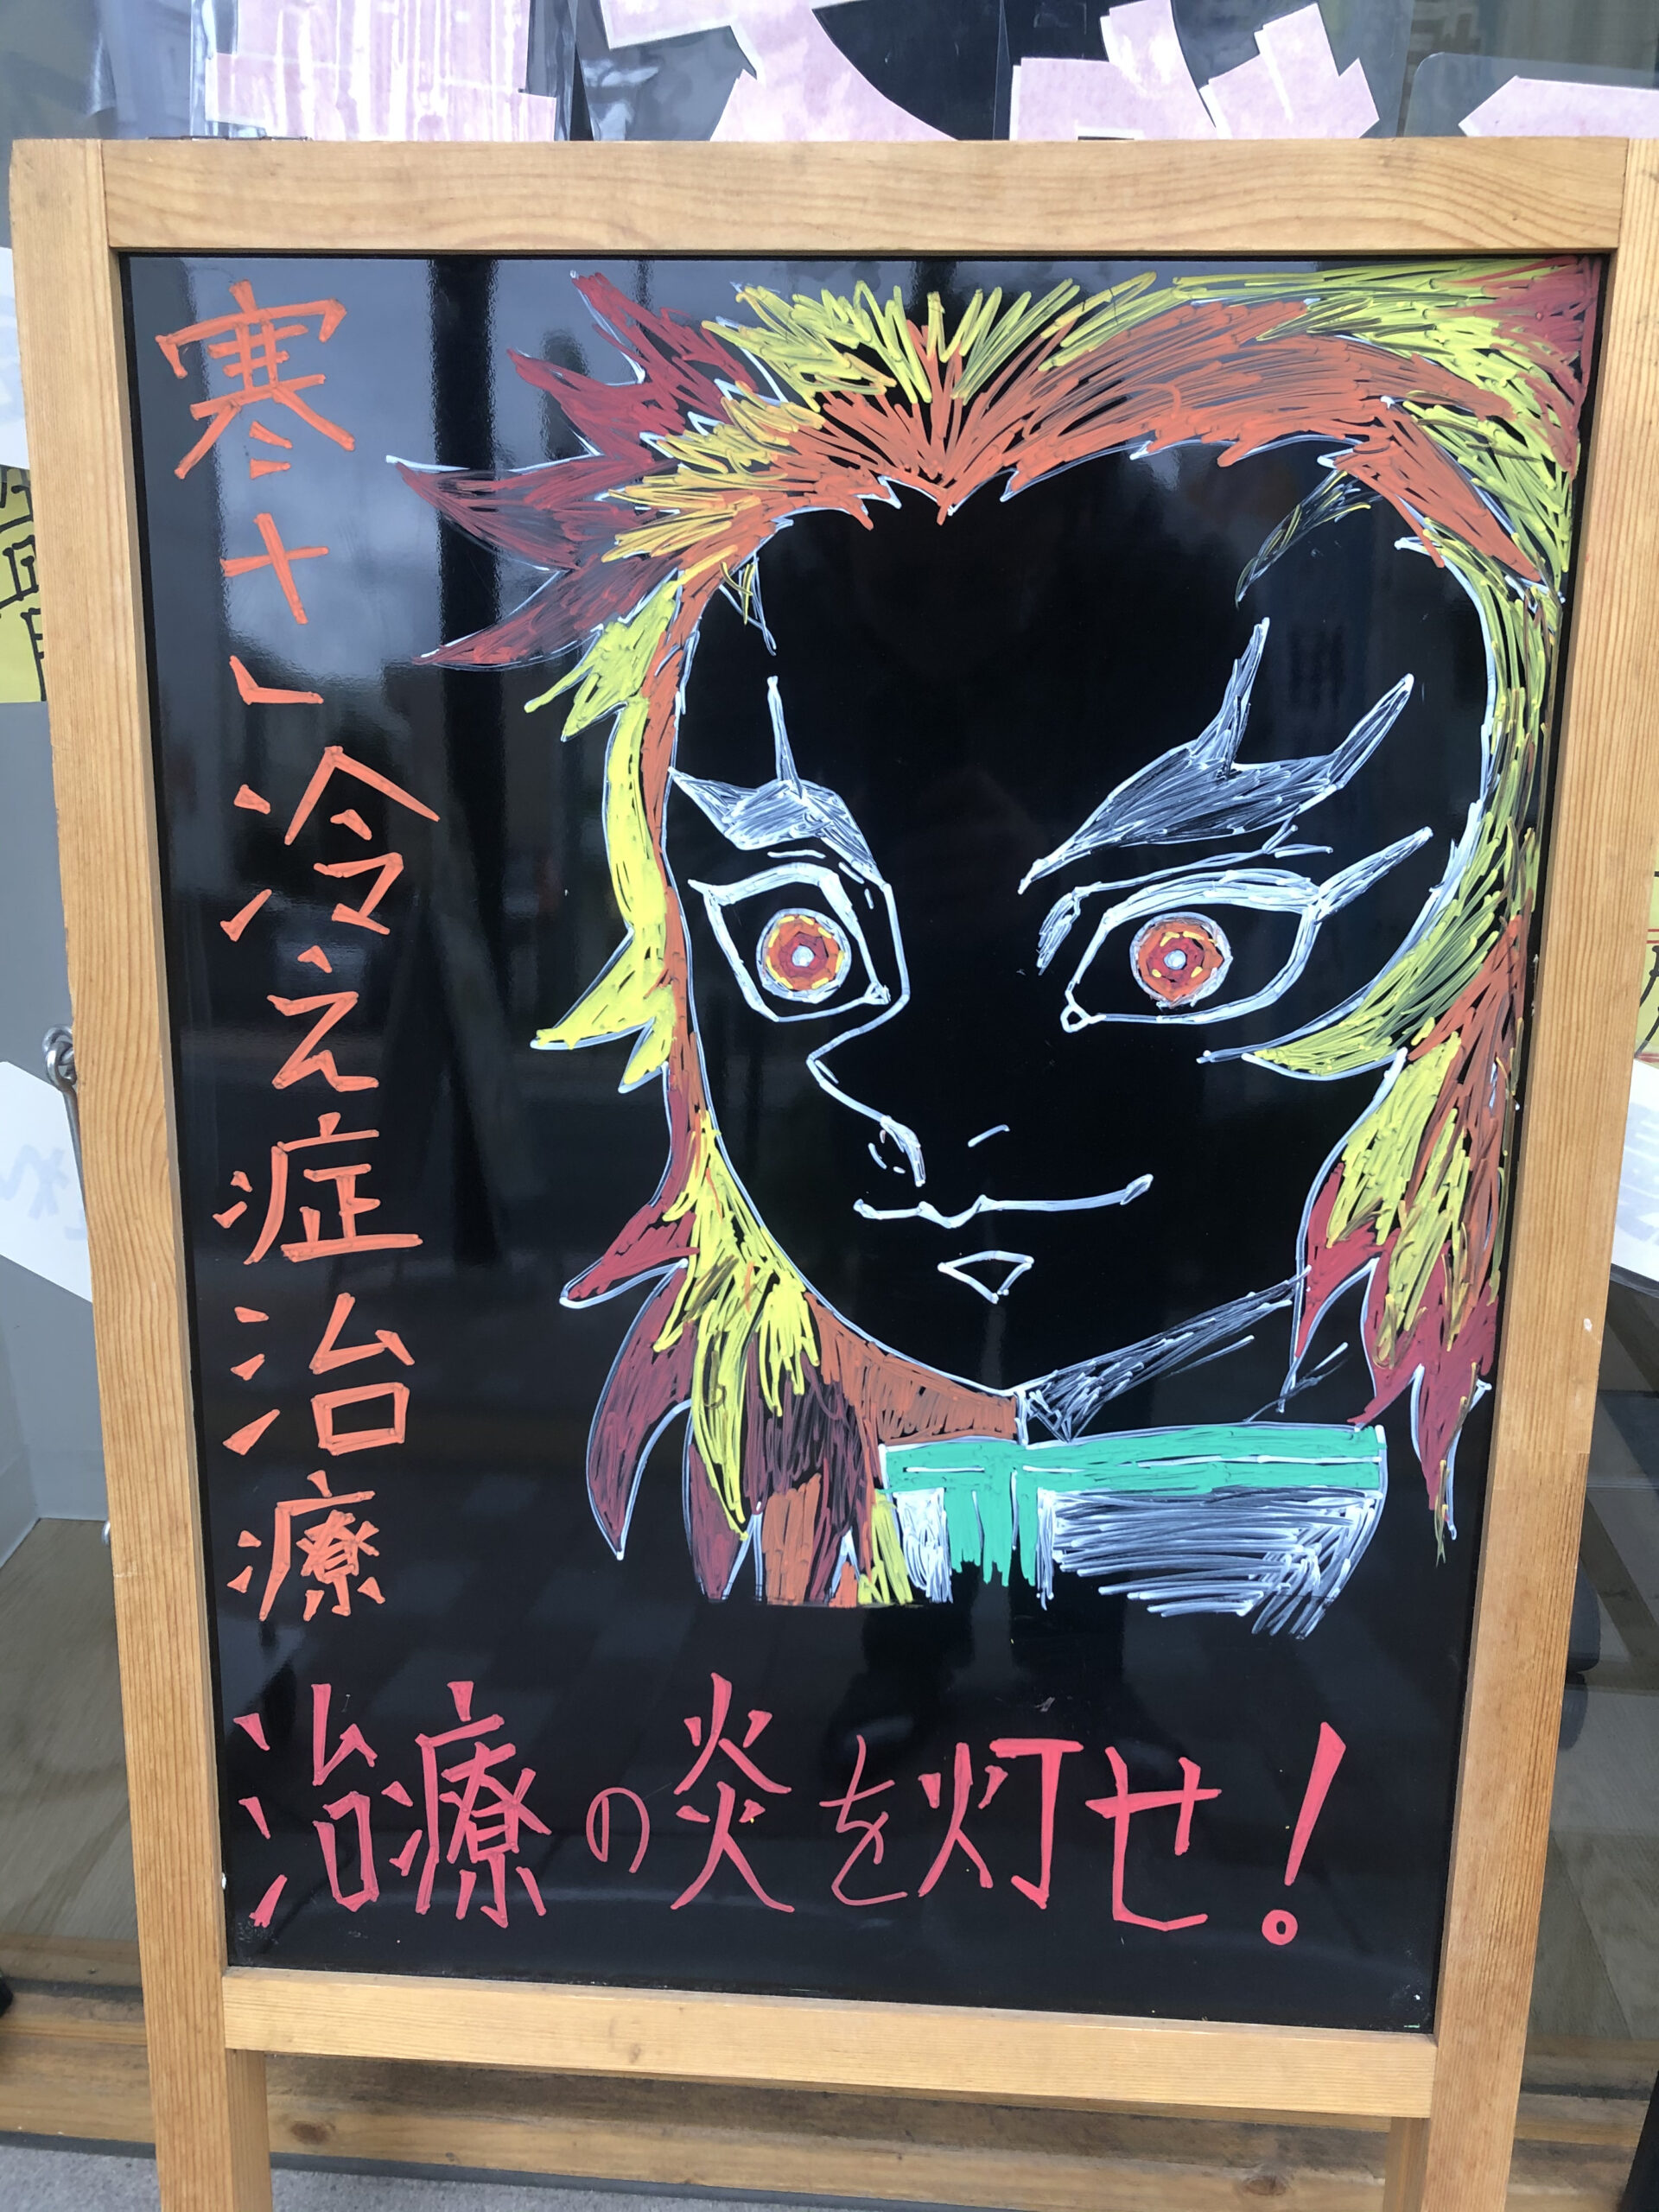 寒さ冷え症治療
治療の炎を灯せ！